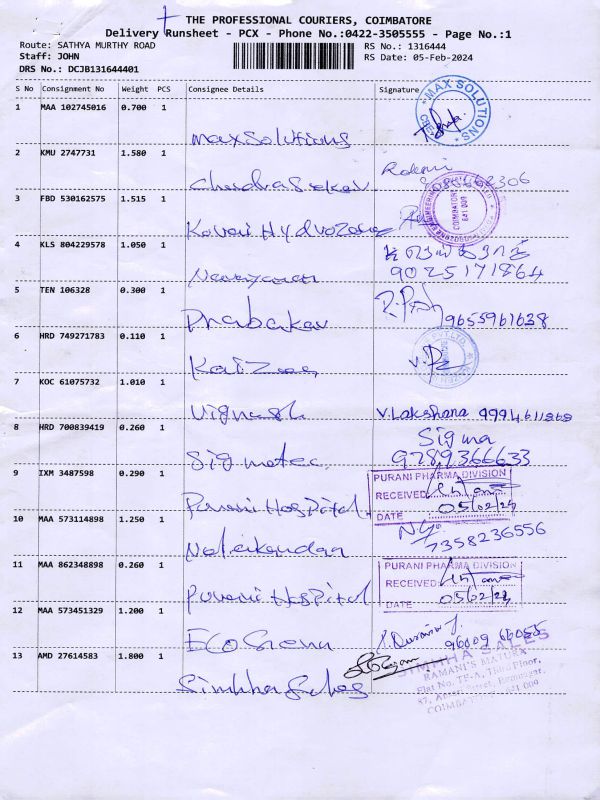 THE PROFESSIONAL COURIERS, COIMBATORE
Delivery Runsheet - PCX - Phone No.:0422-3505555 - Page No.:1
Route: SATHYA MURTHY ROAD RS No.: 1316444
Staff: JOHN RS Date: 05-Feb-2024
DRS No.: DCJB131644401
S No Consignment No Weight PCS Consignee Details Signature
1 MAA 102745016 0.700 1 Max Solutions MAX SOLUTIONS CBE
2 KMU 2747731 1.580 1 Chandrasekar
3 FBD 530162575 1.515 1 Kovai Hydro COIMBATORE 641 009
4 KLS 804229578 1.050 1
9025171864
5 TEN 106328 0.300 1 Prabakar 9655961638
6 HRD 749271783 0.110 1 Kaizen
7 KOC 61075732 1.010 1 Vignesh V. Lakshana
8 HRD 700839419 0.260 1 Sigmatec Sigma
9789366633
9 IXM 3487598 0.290 1 Purani Hospital PURANI PHARMA DIVISION
RECEIVED
DATE 05/02/24
10 MAA 573114898 1.250 1 7358236556
11 MAA 862348898 0.260 1 Purani Hospital PURANI PHARMA DIVISION
RECEIVED
DATE 05/02/24
12 MAA 573451329 1.200 1 96009 66055
13 AMD 27614583 1.800 1 Simbha Sales SIMBHA SALES
RAMANI'S MATURX
Flat No. TF-A, Third Floor,
COIMBATORE - 641 009